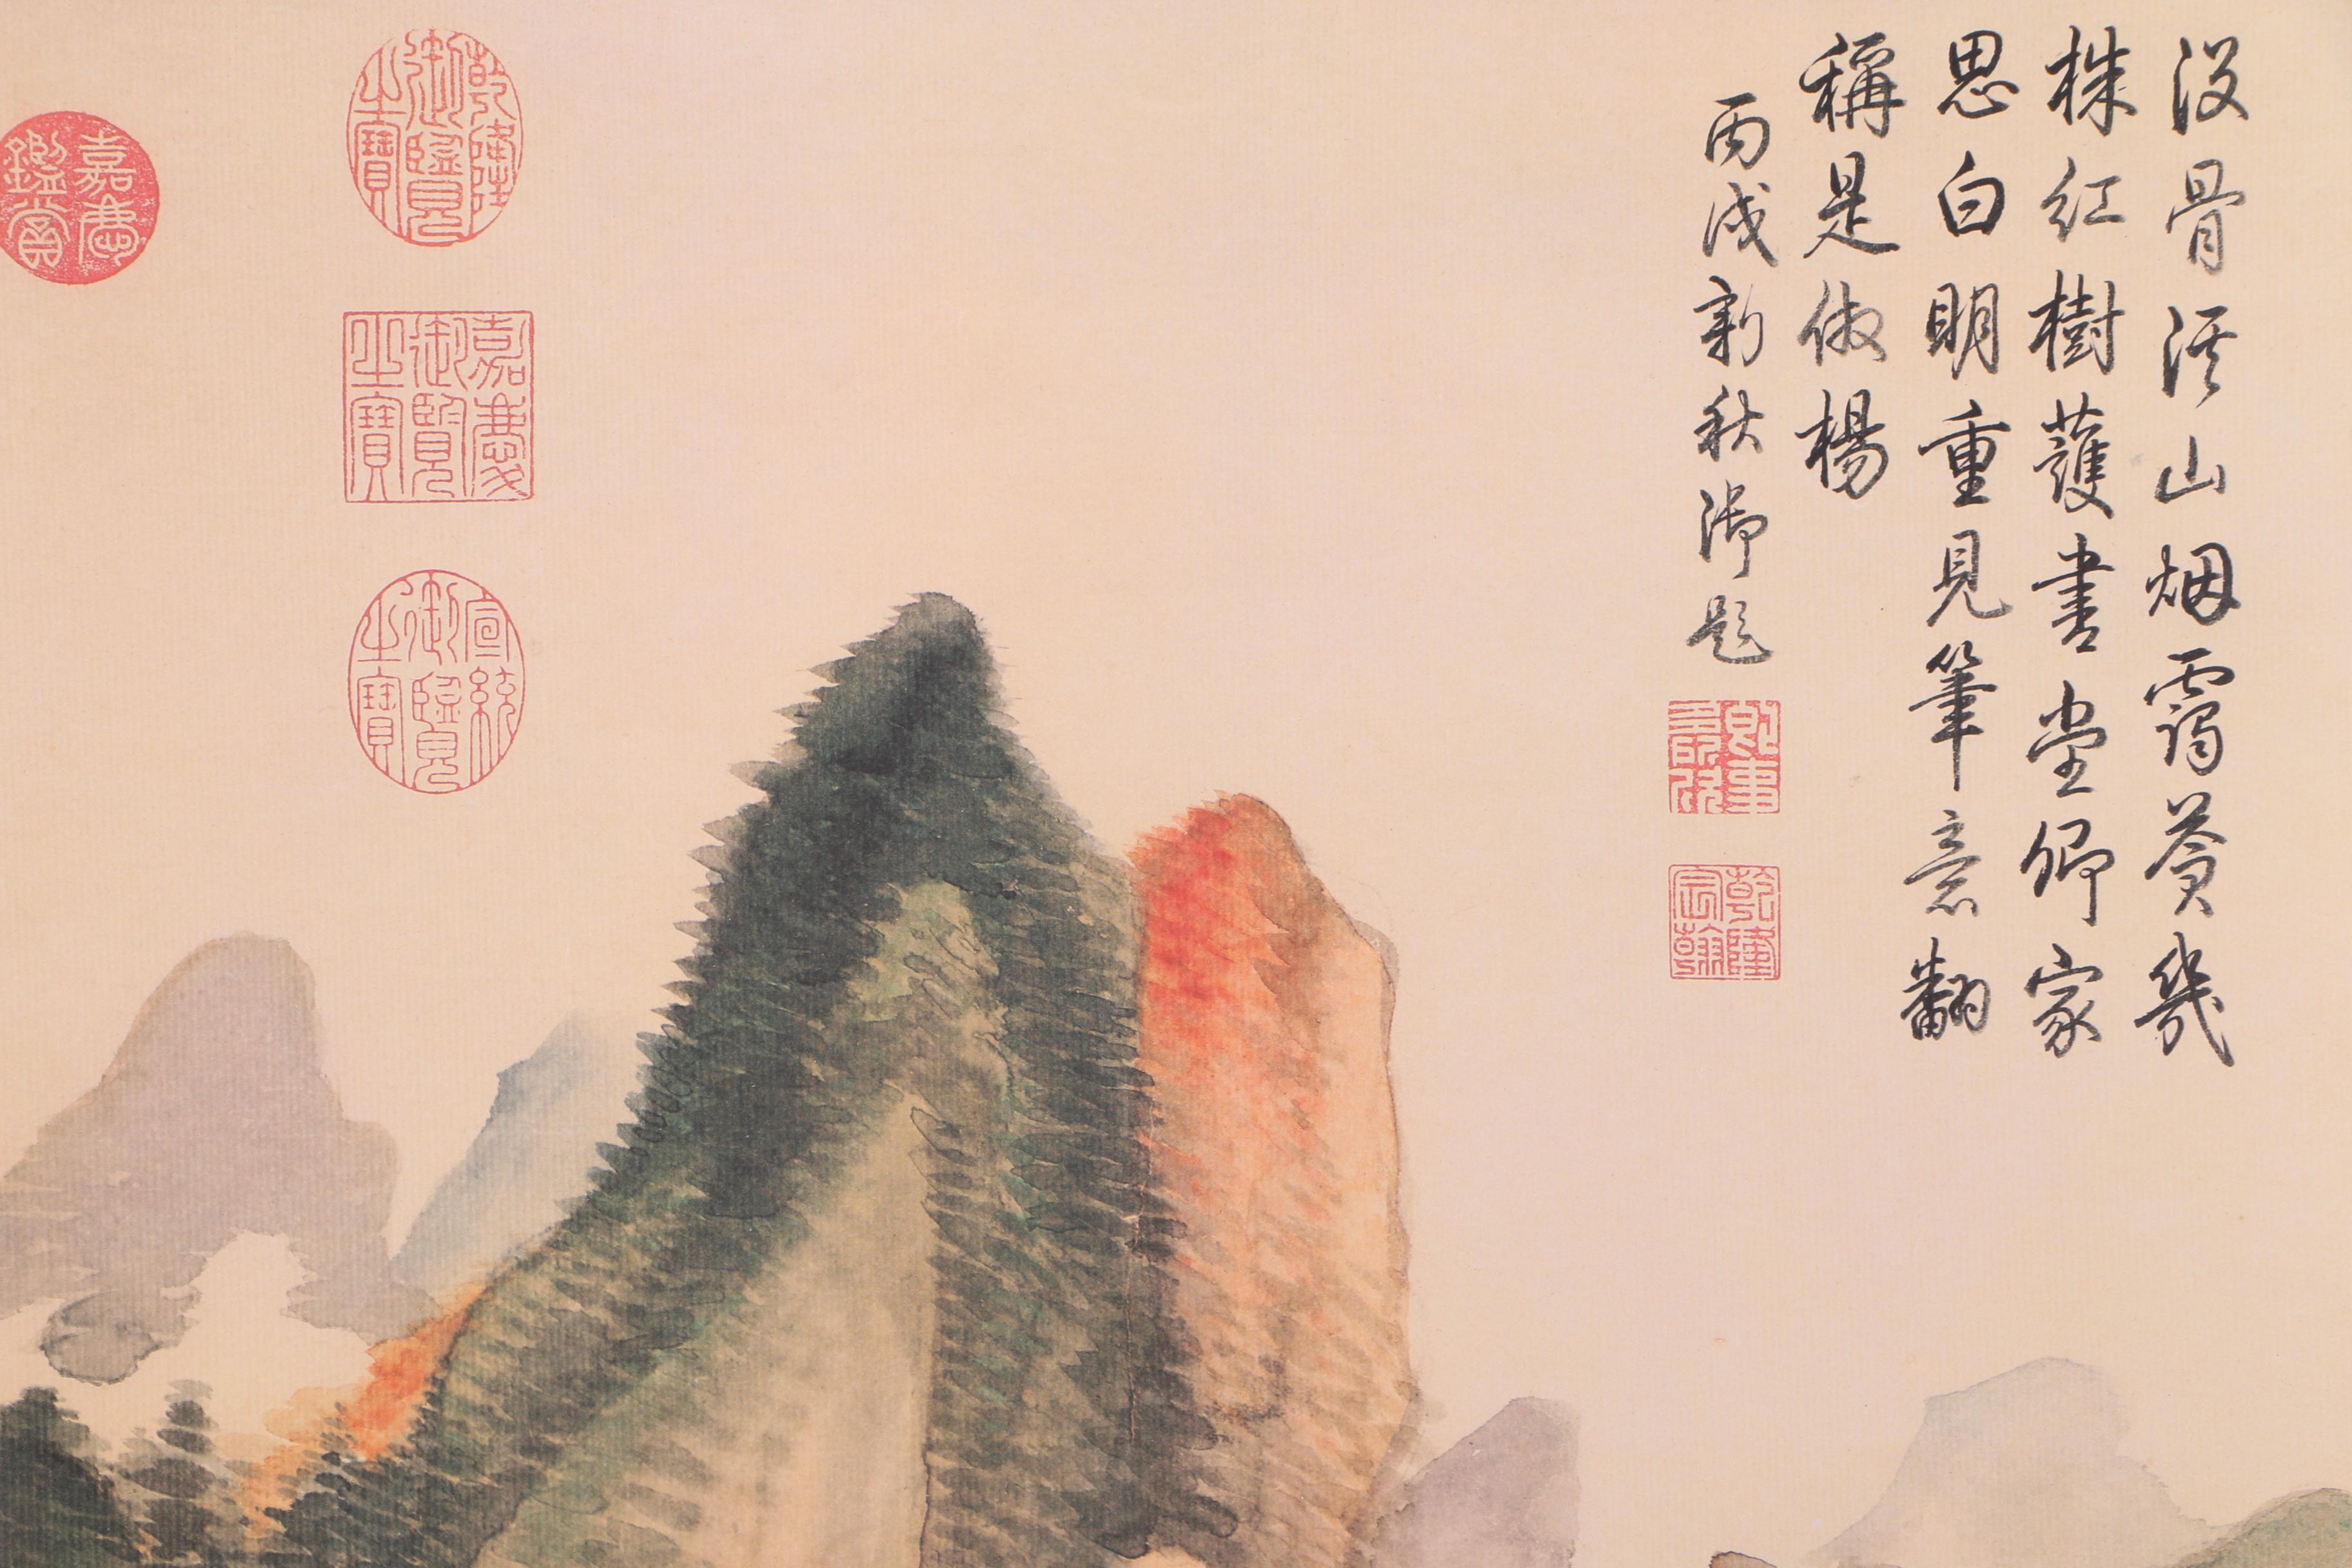 没骨溪山烟靄蒼幾
株紅樹護書堂卿家
思白明重見筆意翻
稱是倣楊
丙戌新秋御題
即事多所欣
乾隆宸翰
乾隆御覽之寶
嘉慶御覽之寶
宣統御覽之寶
嘉慶鑑賞